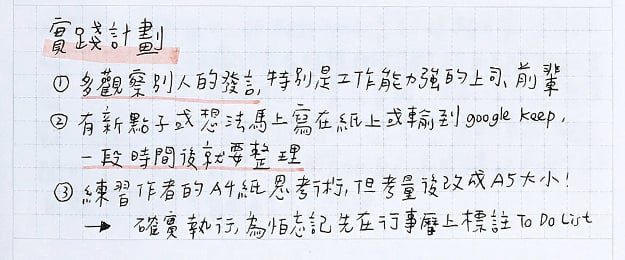 實踐計劃
① 多觀察別人的發言,特別是工作能力強的上司、前輩
② 有新點子或想法馬上寫在紙上或輸到google keep,
一段時間後就要整理
③ 練習作者的A4紙思考術,但考量後改成A5大小!
→ 確實執行,為怕忘記先在行事曆上標註 To Do List